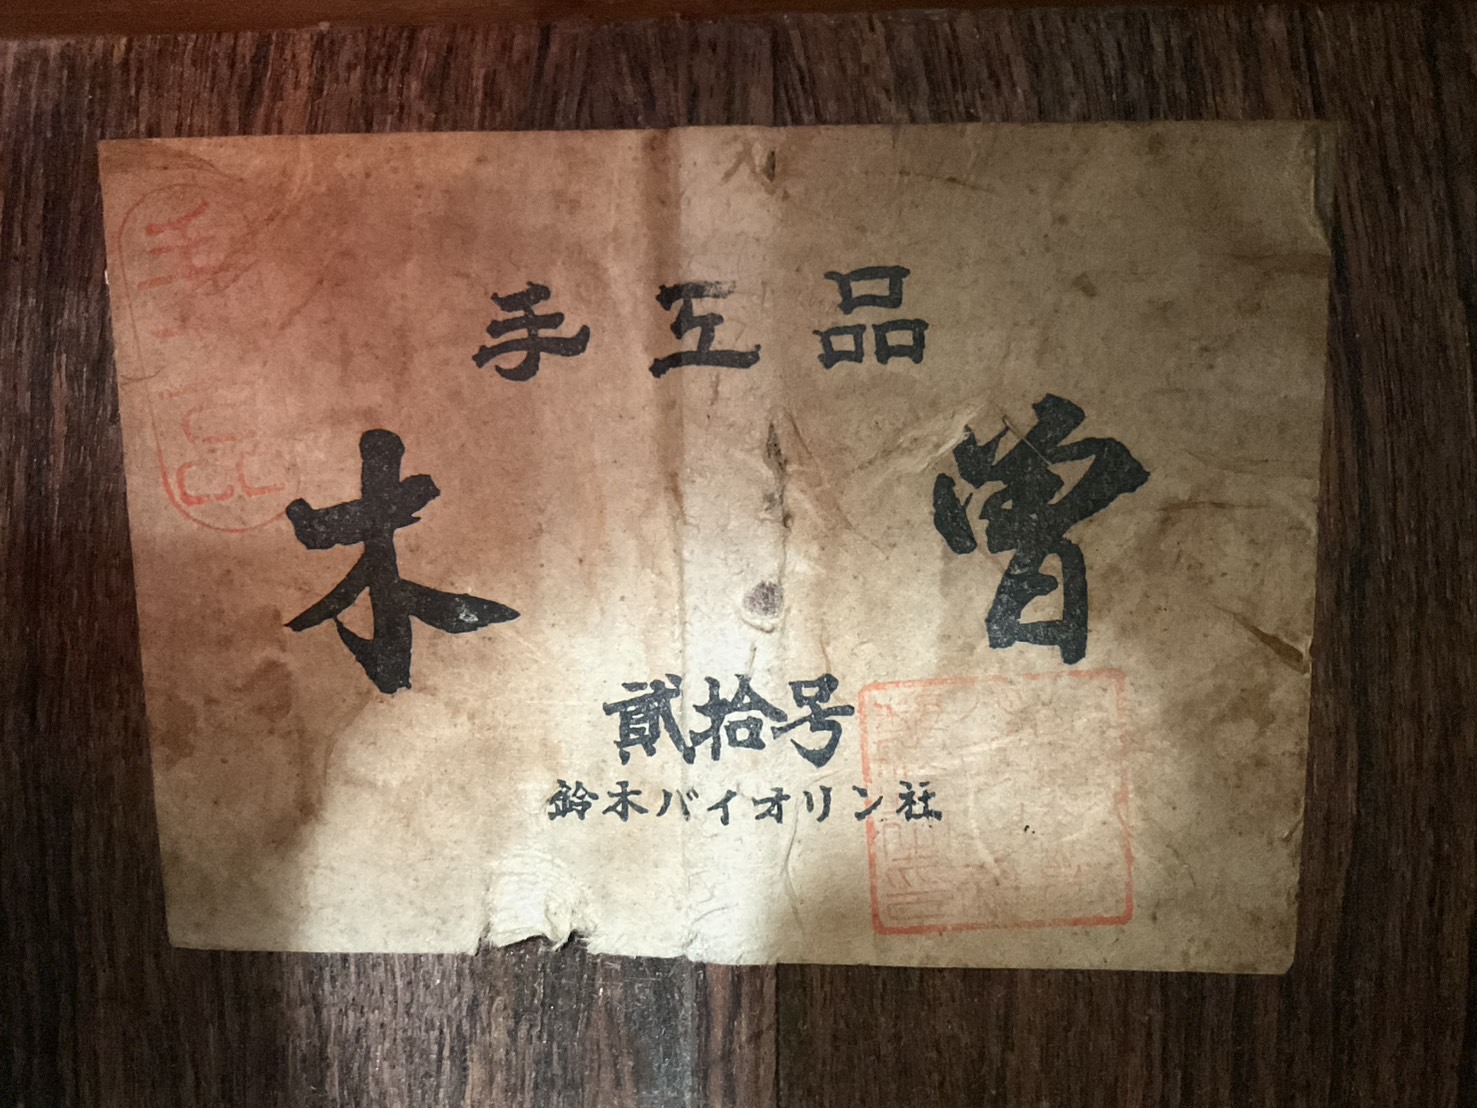 手工品
木曽
貳拾号
鈴木バイオリン社